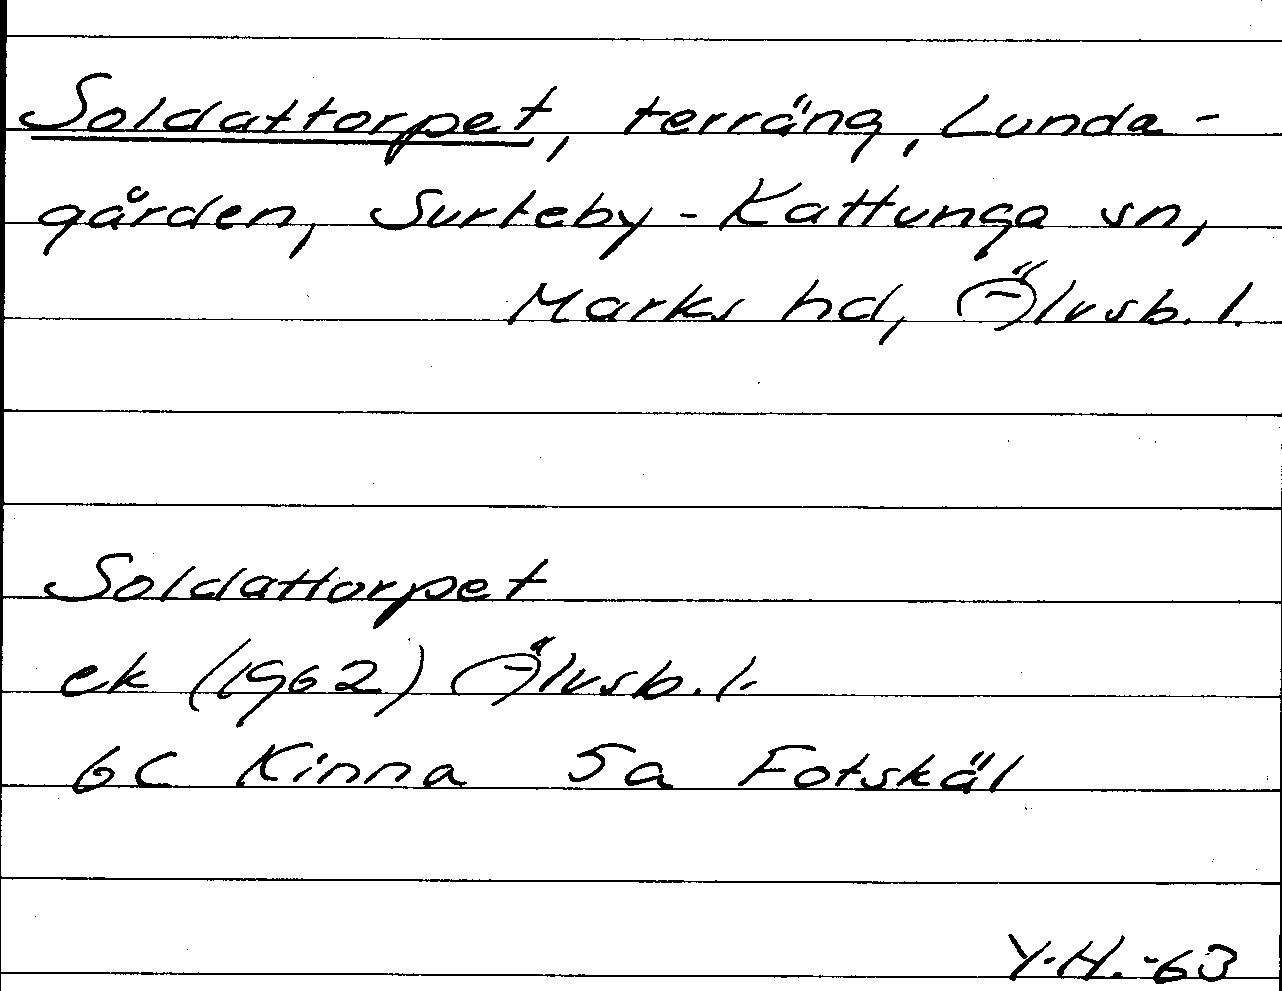 Soldattorpet, terräng, Lunda-
gården, Surteby-Kattunga sn,
Marks hd, Älvsb. l.
Soldattorpet
ek (1962) Älvsb. l.
6C Kinna 5a Fotskäl
Y.H.-63